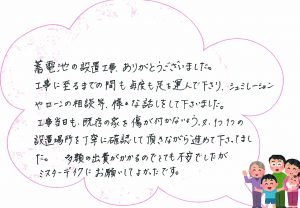 蓄電池の設置工事、ありがとうございました。
工事に至るまでの間も何度も足を運んで下り、シュミレーション
やローンの相談等、様々な話しをして下さいました。
工事当日も、既存の家を傷が付かないよう、又、1つ1つの
設置場所を丁寧に確認して頂きながら進めて下さってまし
た。 多額の出費がかかるのでとても不安でしたが
ミスターデイクにお願いしてよかったです。